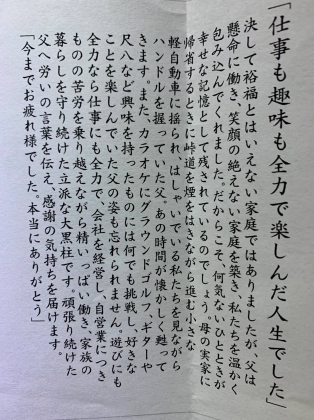 「仕事も趣味も全力で楽しんだ人生でした」
決して裕福とはいえない家庭ではありましたが、父は
懸命に働き、笑顔の絶えない家庭を築き、私たちを温かく
包み込んでくれました。だからこそ、何気ないひとときが
幸せな記憶として残されているのでしょう。母の実家に
帰省するときに峠道を煙をはきながら進む小さな
軽自動車に揺られ、はしゃいでいる私たちを見ながら
ハンドルを握っていた父。あの時間が懐かしく甦って
きます。また、カラオケにグラウンドゴルフ、ギターや
尺八など興味を持ったものには何でも挑戦し、好きな
ことを楽しんでいた父の姿も忘れられません。遊びにも
全力なら仕事にも全力で、会社を経営し、自営業につき
ものの苦労を乗り越えながら精いっぱい働き、家族の
暮らしを守り続けた立派な大黒柱です。頑張り続けた
父へ労いの言葉を伝え、感謝の気持ちを届けます。
「今までお疲れ様でした。本当にありがとう」